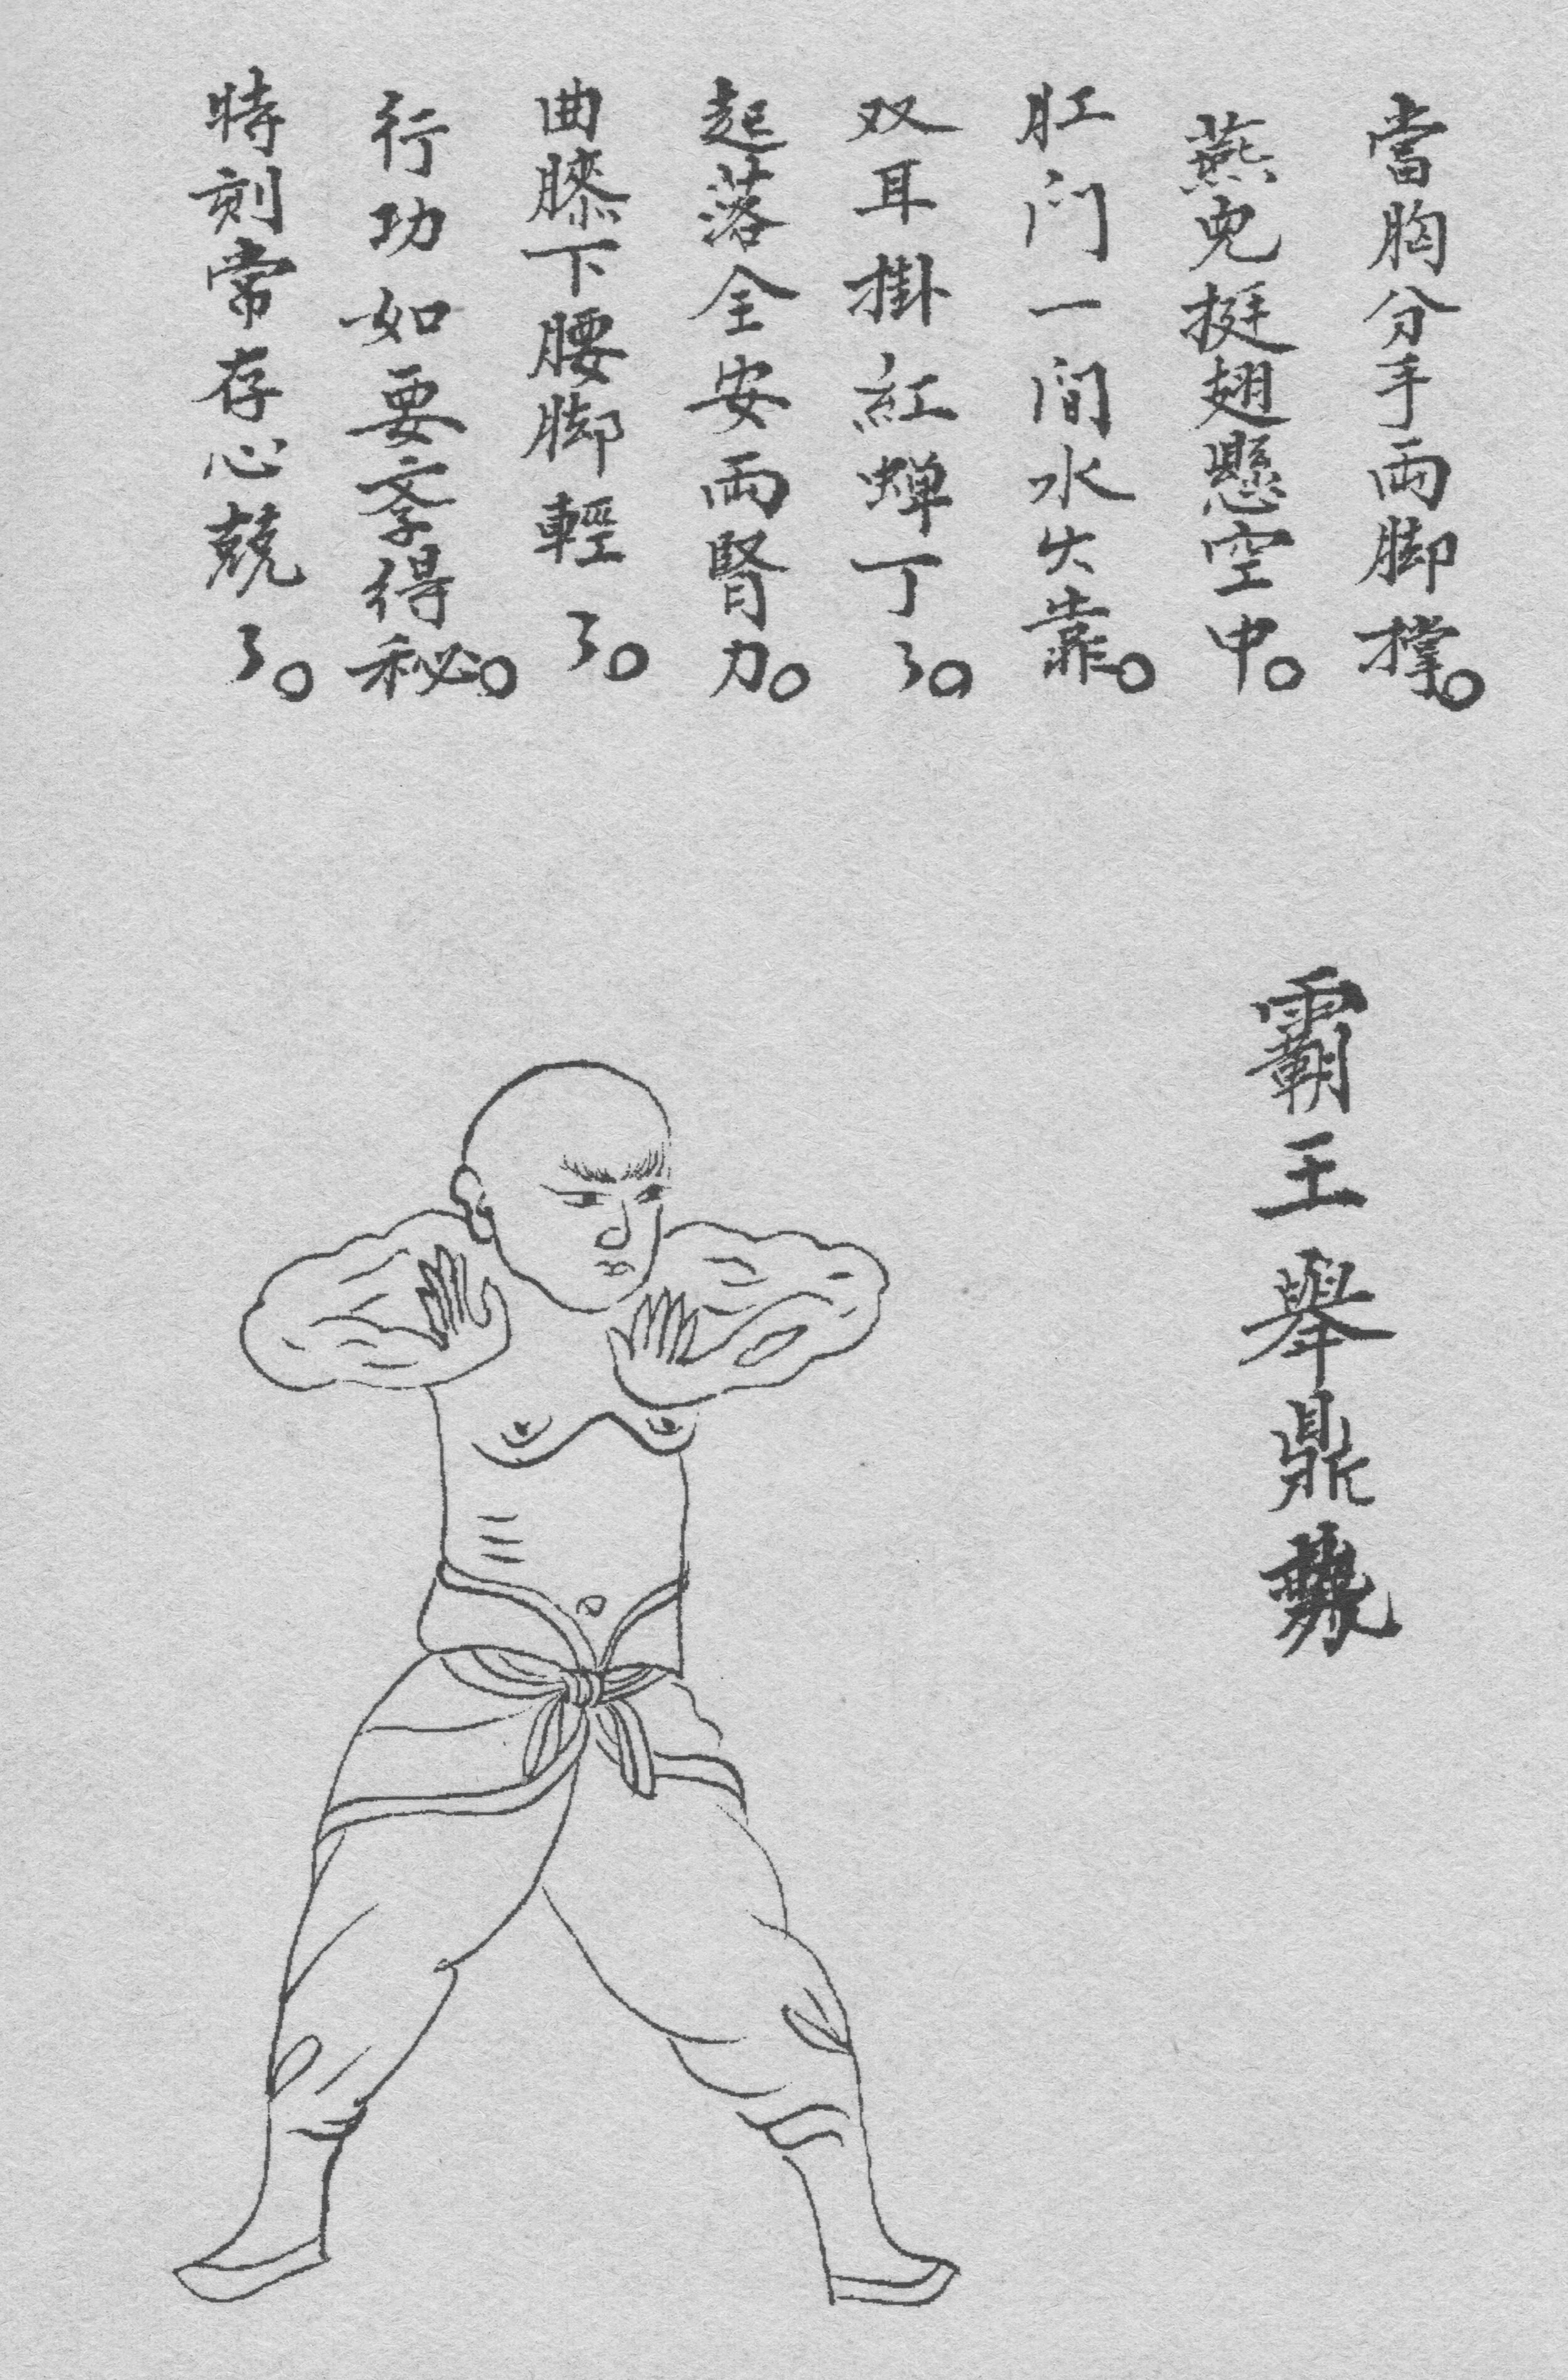 當胸分手兩脚撑。
燕皃挺翅懸空中。
肛门一间水火靠。
双耳掛紅蝉丁了。
起落全安兩腎力。
曲膝下腰脚輕了。
行功如要斈得秘。
時刻常存心兢了。
霸王舉鼎勢